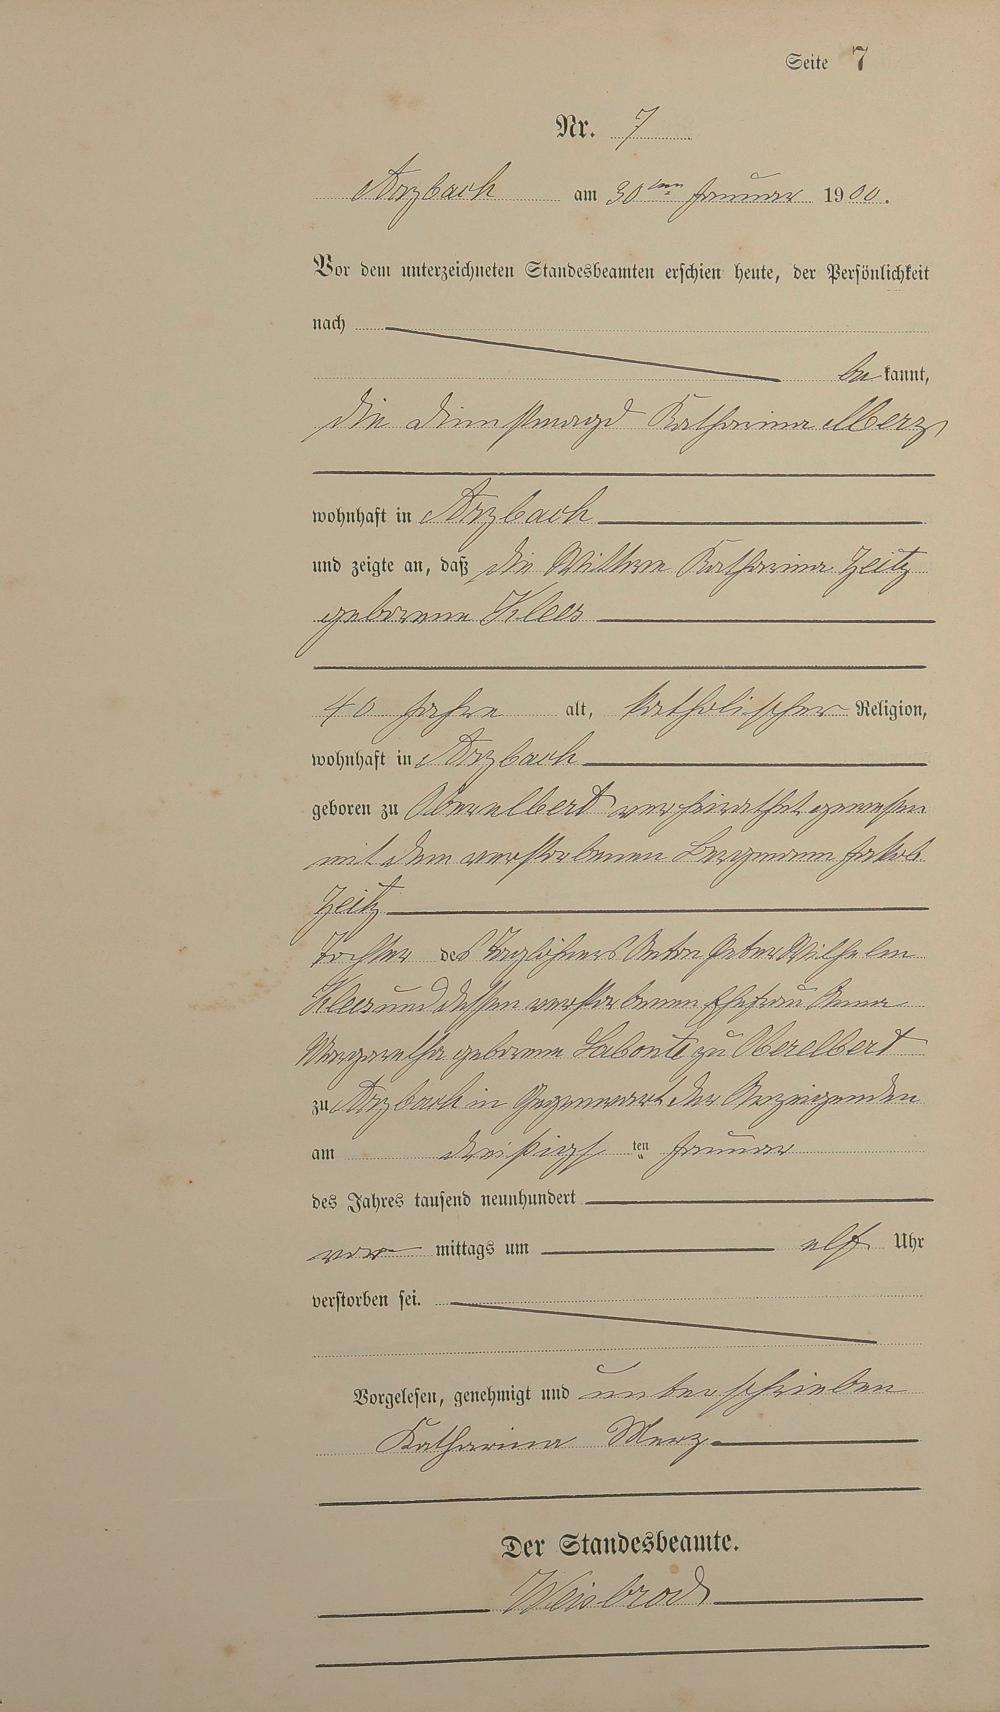 Seite 7
Nr. 7
Arzbach am 30ten Januar 1900.
Vor dem unterzeichneten Standesbeamten erschien heute, der Persönlichkeit
nach
be kannt,
die Dienstmagd Katharina Merz
wohnhaft in Arzbach
und zeigte an, daß die Wittwe Katharina Zeitz
geborene Klees
40 Jahre alt, katholischer Religion,
wohnhaft in Arzbach
geboren zu Oberelbert verheirathet gewesen
mit dem verstorbenen Bergmann Jakob
Zeitz
Tochter des Taglöhners Anton Peter Wilhelm
Klees und dessen verstorbenen Ehefrau Anna
Margaretha geborene Labonte zu Oberelbert
zu Arzbach in Gegenwart der Anzeigenden
am dreißigsten Januar
des Jahres tausend neunhundert
vor mittags um elf Uhr
verstorben sei.
Vorgelesen, genehmigt und unterschrieben
Katharina Merz
Der Standesbeamte.
Weisbrod